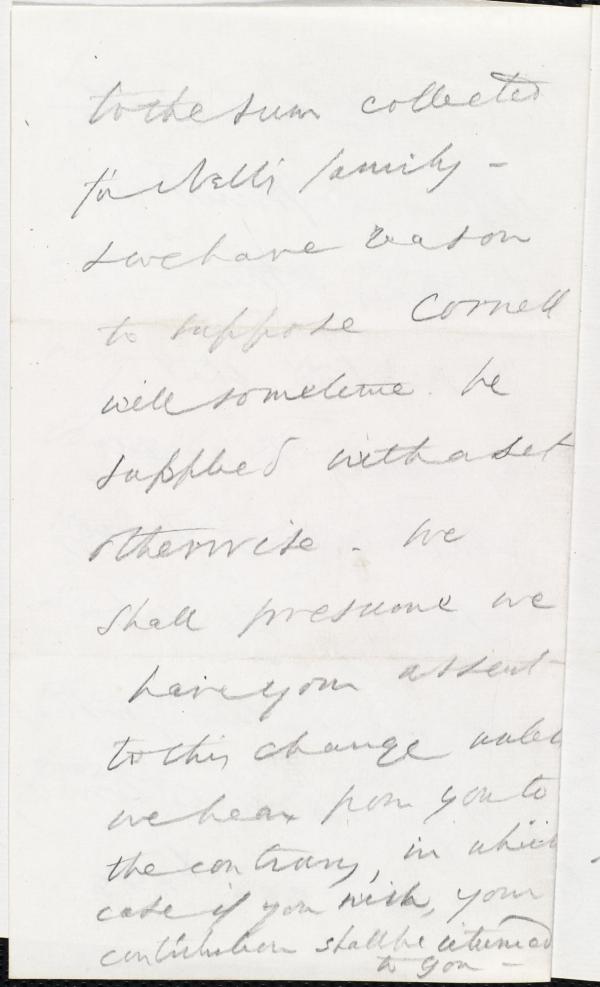 to the sum collected
for Nell's family –
& we have reason
to suppose Cornell
will sometime be
supplied with a set
otherwise – We
shall presume we
have your assent
to this change unless
we hear from you to
the contrary, in which
case if you wish, your
contribution shall be returned
to you –